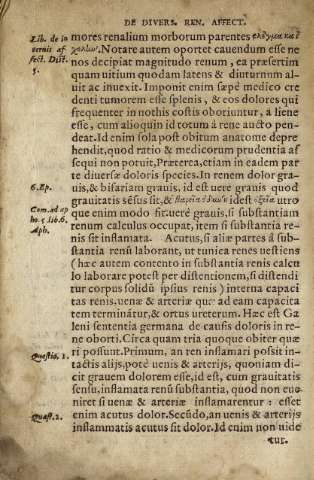 DE DIVERS. REN. AFFECT.
Lib. de in
ternis af
fect. Dist.
5.
mores renalium morborum parentes
Notare autem oportet cauendum esse ne
nos decipiat magnitudo renum, ea præsertim
quam uitium quodam latens & diuturnum al-
uit ac inuexit. Imponit enim sæpè medico cre
denti tumorem esse splenis, & eos dolores qui
frequenter in nothis costis oboriuntur, à liene
esse, cum alioquin id totum à rene aucto pen-
deat. Id enim sola post obitum anatome depre
hendit, quod ratio & medicorum prudentia as
sequi non potuit. Præterea, etiam in eadem par
te diuersæ doloris species. In renem dolor gra-
6. Ep.
uis, & bifariam grauis, id est uere grauis quod
grauitatis sẽsus sit, & idest utro
Com. ad ap
ho. 5 lib. 6.
Aph.
que enim modo fit: uerè grauis, si substantiam
renum calculus occupat, item si substantia re-
nis sit inflamata. Acutus, si aliæ partes à sub-
stantia renũ laborant, ut tunica renes uestiens
(hæc autem contento in substantia renis calcu
lo laborare potest per distentionem, si distendi
tur corpus solidũ ipsius renis) interna capaci
tas renis, uenæ & arteriæ quæ ad eam capacita
tem terminãtur, & ortus ureterum. Hæc est Ga
leni sententia germana de causis doloris in re-
ne oborti. Circa quam tria quoque obiter quæ
Quæstio. 1.
ri possunt. Primum, an ren inflamari possit in-
tactis alijs, potè uenis & arterijs, quoniam di-
cit grauem dolorem esse, id est, cum grauitatis
sensu, inflamata renũ substantia, quod non eue
niret si uenæ & arteriæ inflamarentur: esset
Quæst. 2.
enim acutus dolor. Secũdo, an uenis & arterijs
inflammatis acutus sit dolor. Id enim non uide
tur.